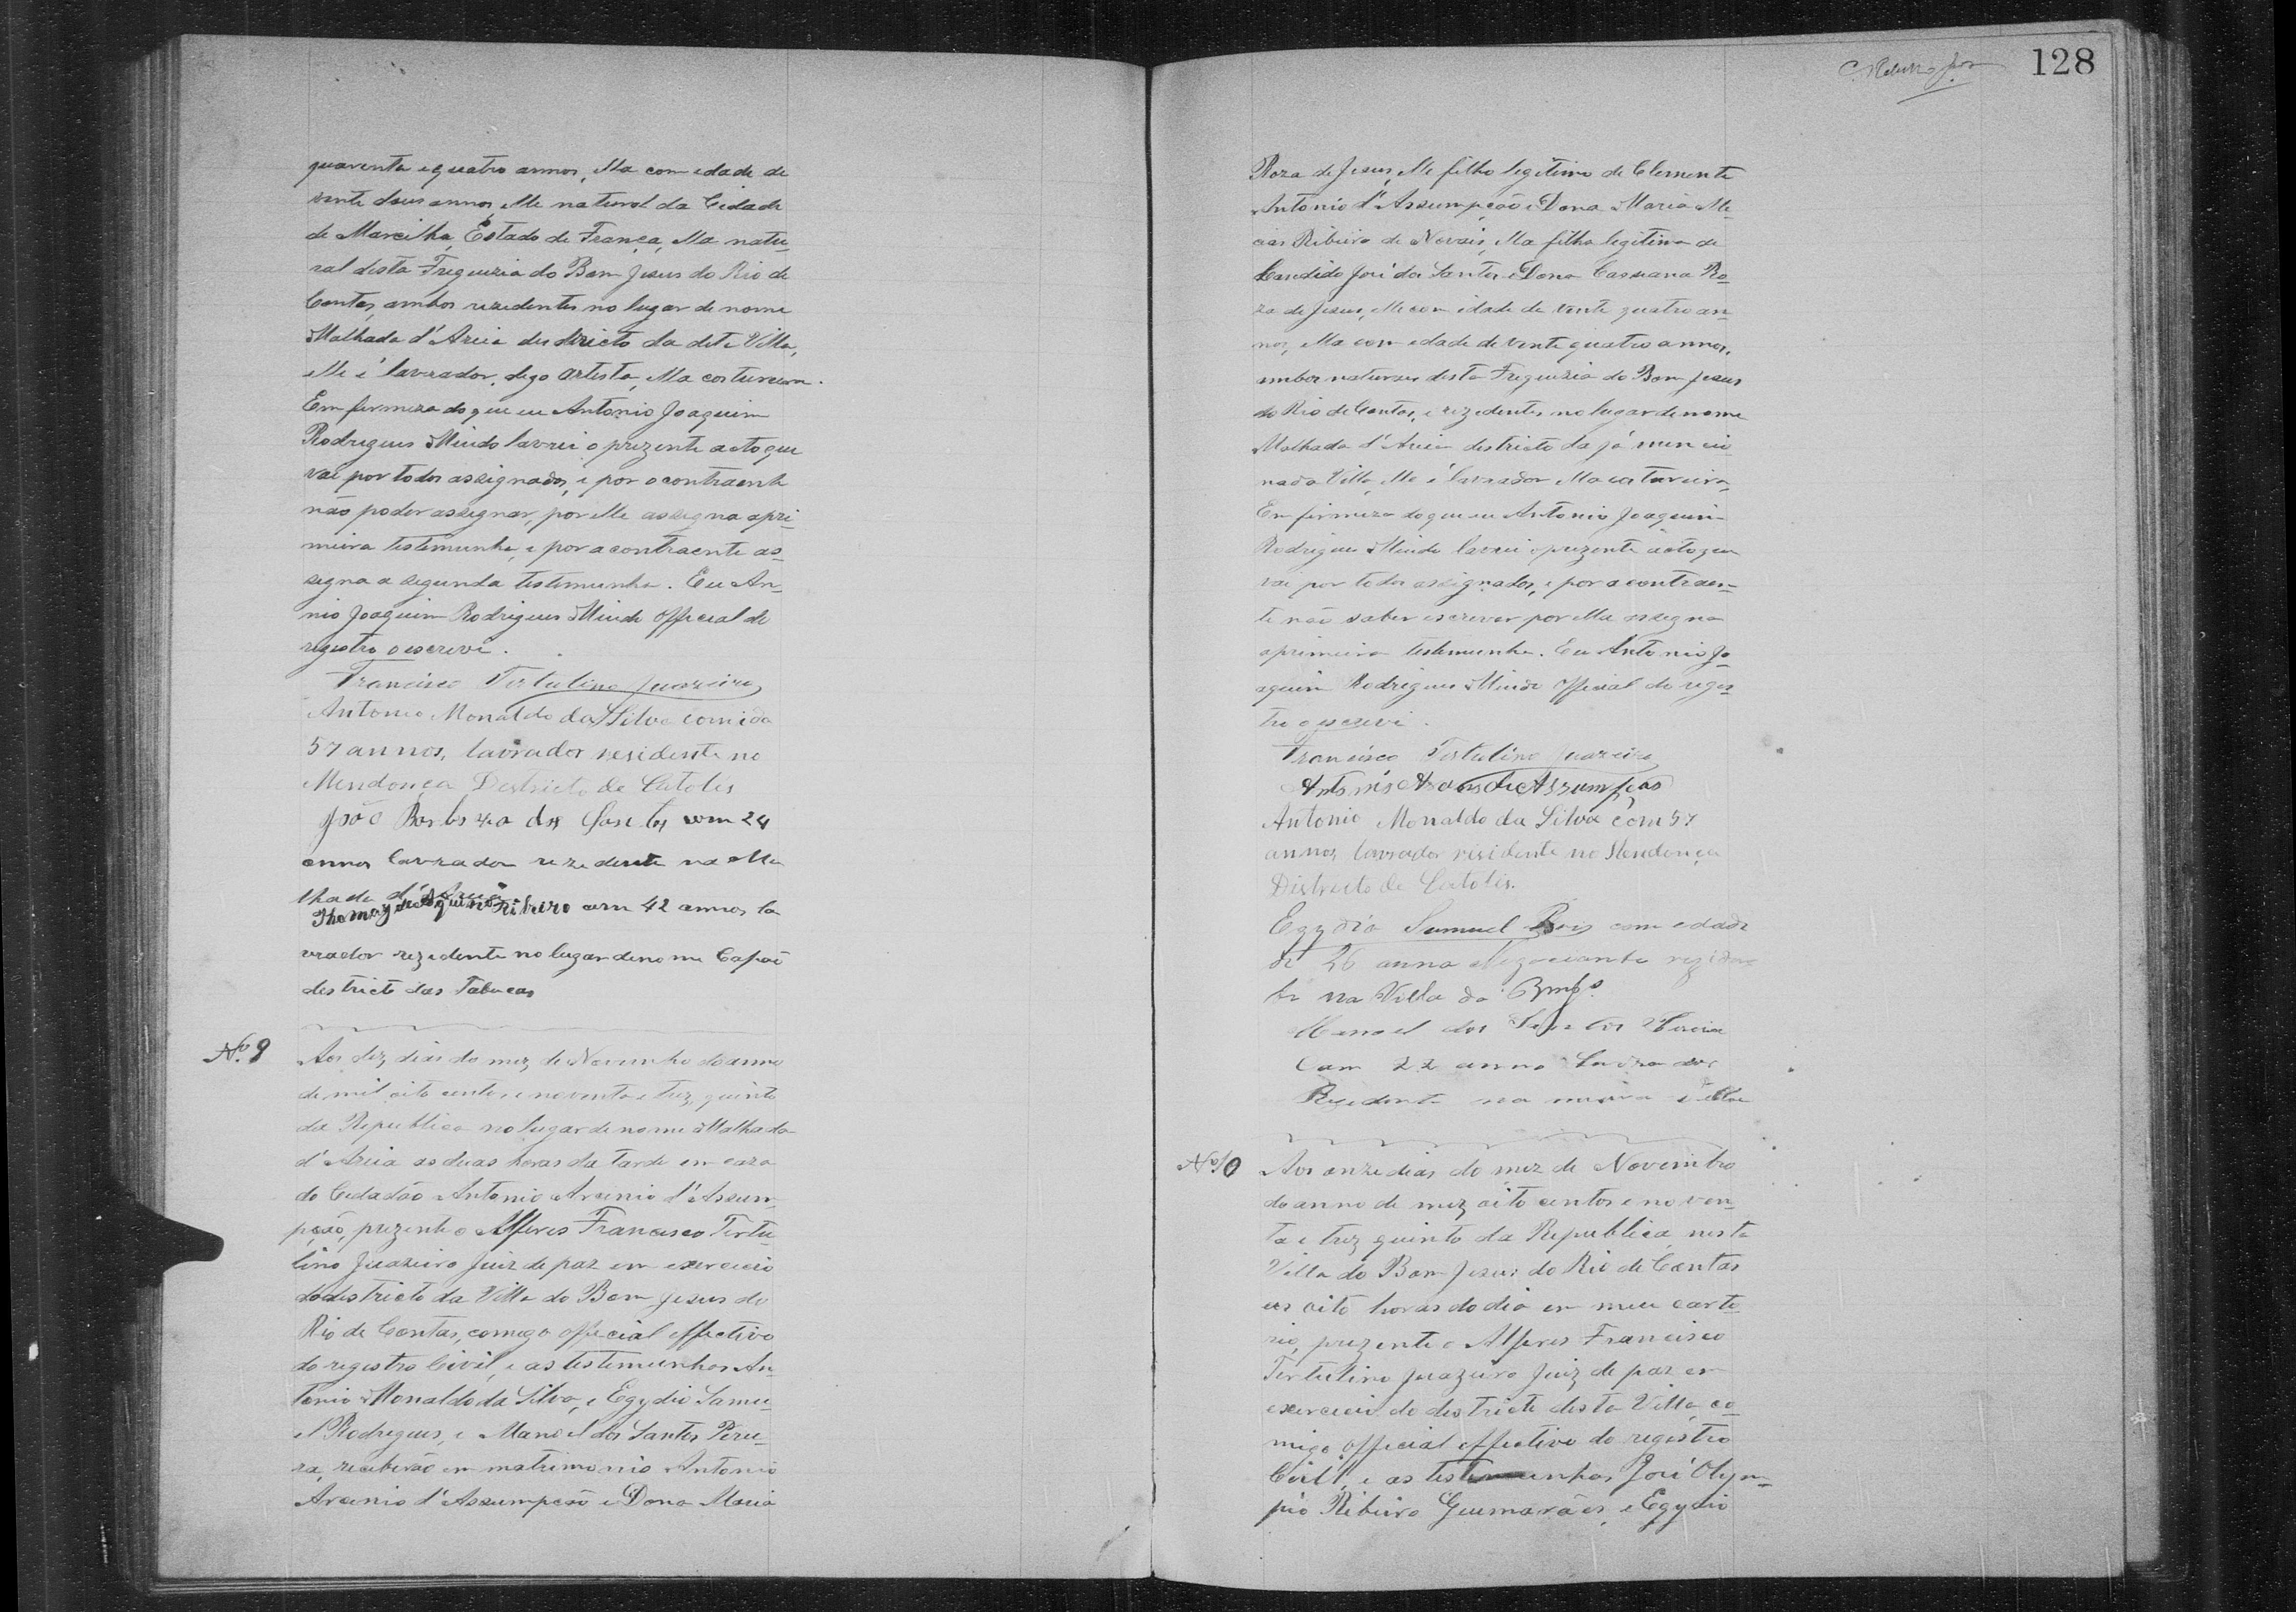 quarenta e quatro annos, Ella com edade de
vinte dous annos, Elle natural da Cidade
de Marcilha, Estado de França, Ella natu-
ral desta Freguezia do Bom Jesus do Rio de
Contas, ambos rezedentes no lugar de nome
Malhada d'Areia destricto da dita Villa,
Elle é lavrador, digo artista, Ella costureira.
Em firmeza do que eu Antonio Joaquim
Rodrigues Mindo lavrei o prezente acto que
vai por todos assignados, e por o contraente
não poder assignar, por elle assigna a pri-
meira testemunha, e por a contraente as-
signa a segunda testemunha. Eu An-
nio Joaquim Rodrigues Mindo official do
registro o escrevi.
Francisco Tertulino Juazeiro
Antonio Monaldo da Silva com ida
57 annos, lavrador residente no
Mendonça Districto de Catolés
João Barboza dos Santos com 24
annos lavrador rezedente na Ma
lhada d'Areia
Thomaz de Aquino Ribeiro com 42 annos la
vrador rezedente no lugar de nome Capaõ
destricto das Tabocas
Nº. 9
Aos dez dias do mez de Novembro do anno
de mil oito centos e noventa e trez, quinto
da Republica no lugar de nome Malhada
d'Areia as duas horas da tarde em caza
do Cidadão Antonio Arcenio d'Assum-
pção, prezente o Alferes Francisco Tertu-
lino Juazeiro Juiz de paz em exercicio
do destricto da Villa do Bom Jesus do
Rio de Contas, comigo official effectivo
do registro Civil, e as testemunhas An-
tonio Monaldo da Silva, e Egydio Samu-
el Rodrigues, e Manoel dos Santos Perei-
ra, receberão em matrimonio Antonio
Arcenio d'Assumpção e Dona Maria
128
Roza de Jesus, Elle filho legitimo de Clemente
Antonio d'Assumpção e Dona Maria Me-
cias Ribeiro de Novais, Ella filha legitima de
Candido José dos Santos e Dona Cassiana Ro-
za de Jesus, Elle com idade de vinte quatro an-
nos, Ella com edade de vinte quatro annos,
ambos naturaes desta Freguezia do Bom Jesus
do Rio de Contas, e rezedentes no lugar de nome
Malhada d'Areia destricto da já mencio
nada Villa, Elle é lavrador Ella costureira,
Em firmeza do que eu Antonio Joaquim
Rodrigues Mindo lavrei o prezente acto que
vai por todos assignados, e por a contraen-
te não saber escrever por ella assigna
a primeira testemunha. Eu Antonio Jo-
aquim Rodrigues Mindo official do regis-
tro o escrevi.
Francisco Tertulino Juazeiro
Antonio de Assumpção
Antonio Monaldo da Silva com 57
annos, lavrador residente no Mendonça
Districto de Catolés.
Egydio Samuel Rois com edade
de 26 anno Negociante reziden
te na Villa do
Manoel dos Santos Pereira
Com 22 anno Lavrador
Rezedente na mesma Villa
Nº 10
Aos onze dias do mez de Novembro
do anno de mez oito centos e noven-
ta e trez quinto da Republica, nesta
Villa do Bom Jesus do Rio de Contas
as oito horas do dia em meu carto-
rio, prezente o Alferes Francisco
Tertulino Juazeiro Juiz de paz em
exercicio do destricto desta Villa, co-
migo official effectivo do registro
Civil, e as testemunhas José Olym-
pio Ribeiro Guimarães, e Egydio